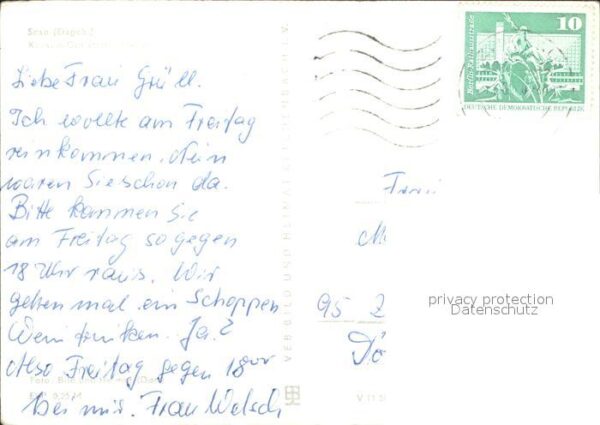 Liebe Frau Grüll.
Ich wollte am Freitag
reinkommen. Nun
waren Sie schon da.
Bitte kommen Sie
am Freitag so gegen
18 Uhr raus. Wir
gehen mal ein Schoppen
Wein trinken. Ja?
Also Freitag gegen 18 Uhr
bei mir. Frau Welsch
VEB BILD UND HEIMAT REICHENBACH I. V.
10
Berlin-Rathausstraße
DEUTSCHE DEMOKRATISCHE REPUBLIK
Frau
M
95 Z
Dö
privacy protection
Datenschutz